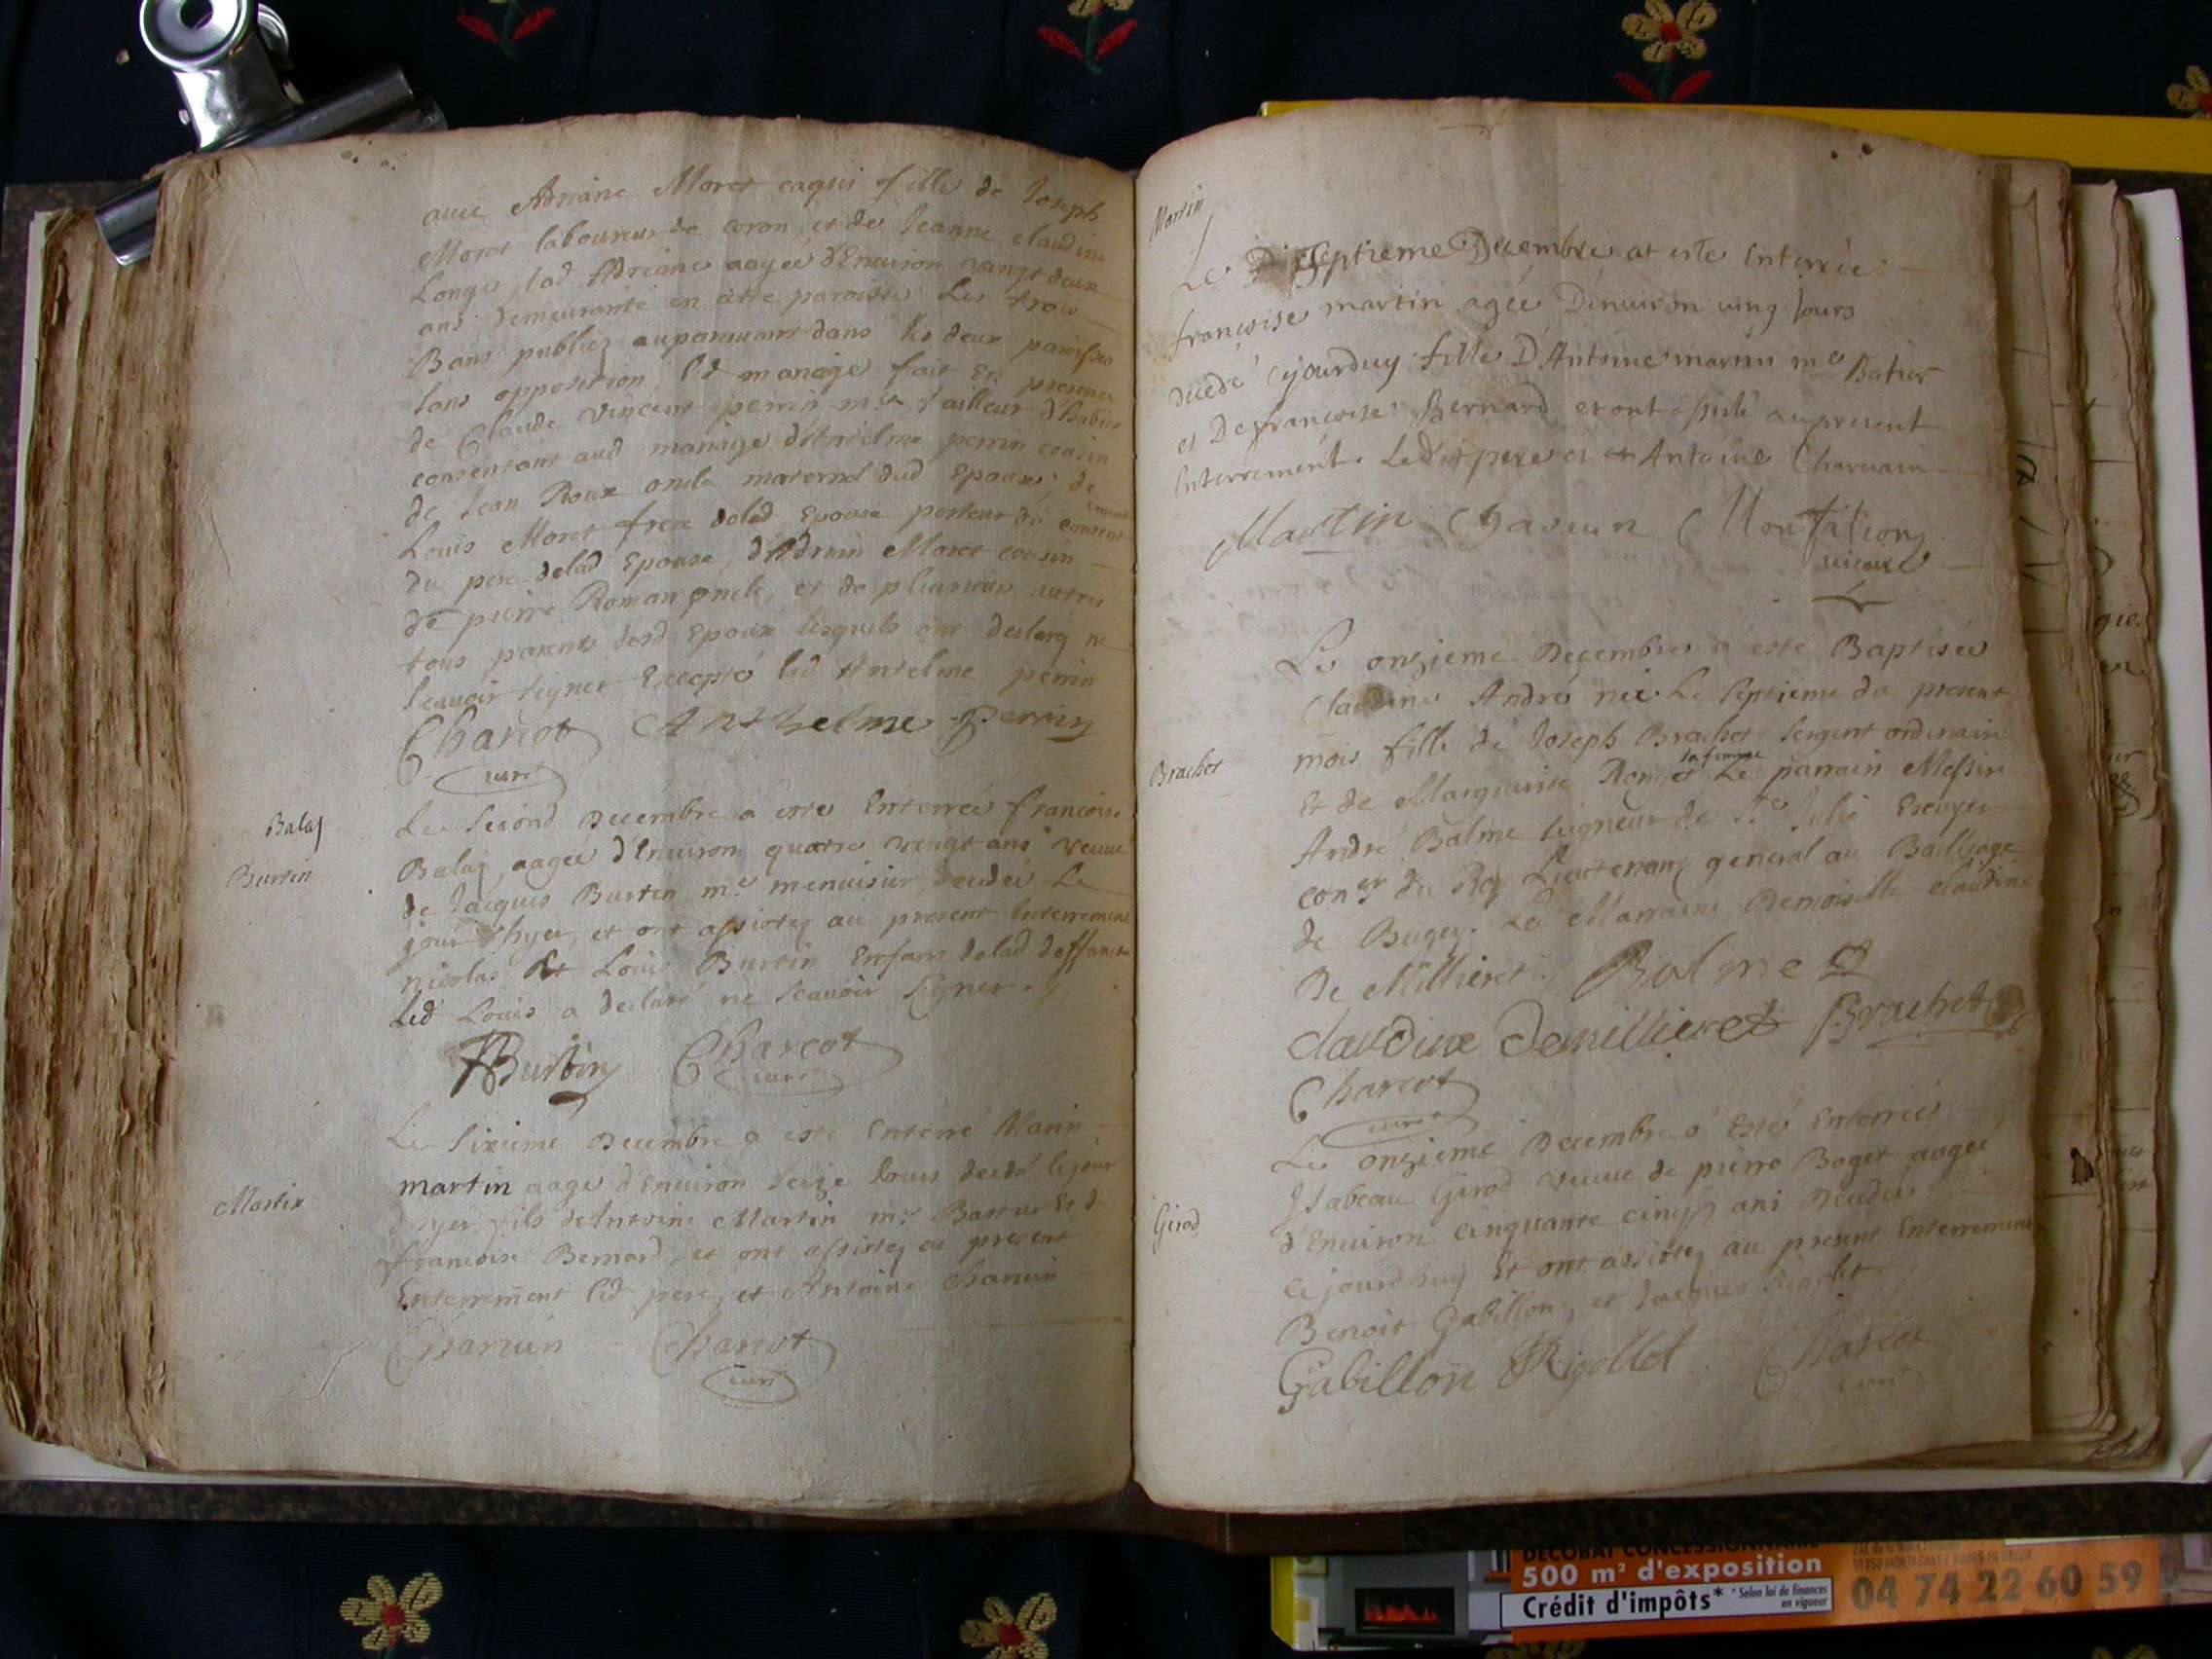 avec Adriane Moret caqui fille de Joseph
Moret laboureur de coron, et de Jeanne claudine
Longe, lad Adriane aagée d'Environ vingt deux
ans, demeurante en cette paroisse Les trois
Bans publiez auparavant dans les deux paroisses
sans opposition, led mariage fait En presence
de Claude Vincent perrin me tailleur d'habits
consentant aud mariage d'Antelme perrin cousin
de Jean Roux oncle maternel dud Epoux, de
Louis Moret frere delad Epouse porteur du consentement
du pere delad Epouse, d'Adrian Moret cousin
de pierre Roman oncle, et de plusieurs autres
tous parents desd Epoux lesquels ont declaré ne
scavoir signer Excepté led Antelme perrin
Charcot Anthelme perrin
curé
Balaj
Burtin
Le second Decembre a esté Enterrée francoise
Balaj, aagée d'Environ quatre vingt ans veuve
de Jacques Burtin me menuisier, decedée Le
jour d'hyer, et ont assistez au present Enterrement
nicolas Et Louis Burtin Enfans delad deffuncte
Led Louis a declaré ne scavoir signer.
Burtin Charcot
curé
Martin
Le Sixieme Decembre a esté Enterré Marin
martin aagé d'Environ seize Jours decedé le jour
d'hyer fils de Antoine Martin me Bastier Et de
francoise Bernard, et ont assistez au present
Enterrement led pere, et Antoine charvin
Charvin Charcot
curé
Martin
Le Dixseptieme Decembre at esté Enterrée
françoise martin agée D'enuiron ving Jours
decedé cejourduy fille D'Antoine martin me Batier
et De françoise Bernard et ont assisté aupresent
Enterrement. Ledit pere et Antoine Charvain
Martin Charvin Montilion
vicaire
Brachet
Le onzieme Decembre a esté Baptisée
Claudine André née Le septieme du present
mois fille de Joseph Brachet sergent ordinaire
Et de Marguerite sa femme Le parrain Messire
André Balme seigneur de Ste Julie Escuyer
coner du Roy Lieutenant general au Bailliage
de Bugey. La Marraine Demoiselle claudine
De Millieret. Balme
claudine Demillieret Brachet
Charcot
curé
Girod
Le onzieme Decembre a Esté Enterrée
Isabeau Girod veuve de pierre Boget aagée
d'Environ cinquante cinq ans Decedée
cejourdhuy Et ont assistez au present Enterrement
Benoit Gabillon, et Jacques Rigolet.
Gabillon Rigollet Charcot
curé
DECOBAT CONCESSIONNAIRE
500 m² d'exposition
Crédit d'impôts* * Selon loi de finances
en vigueur
04 74 22 60 59